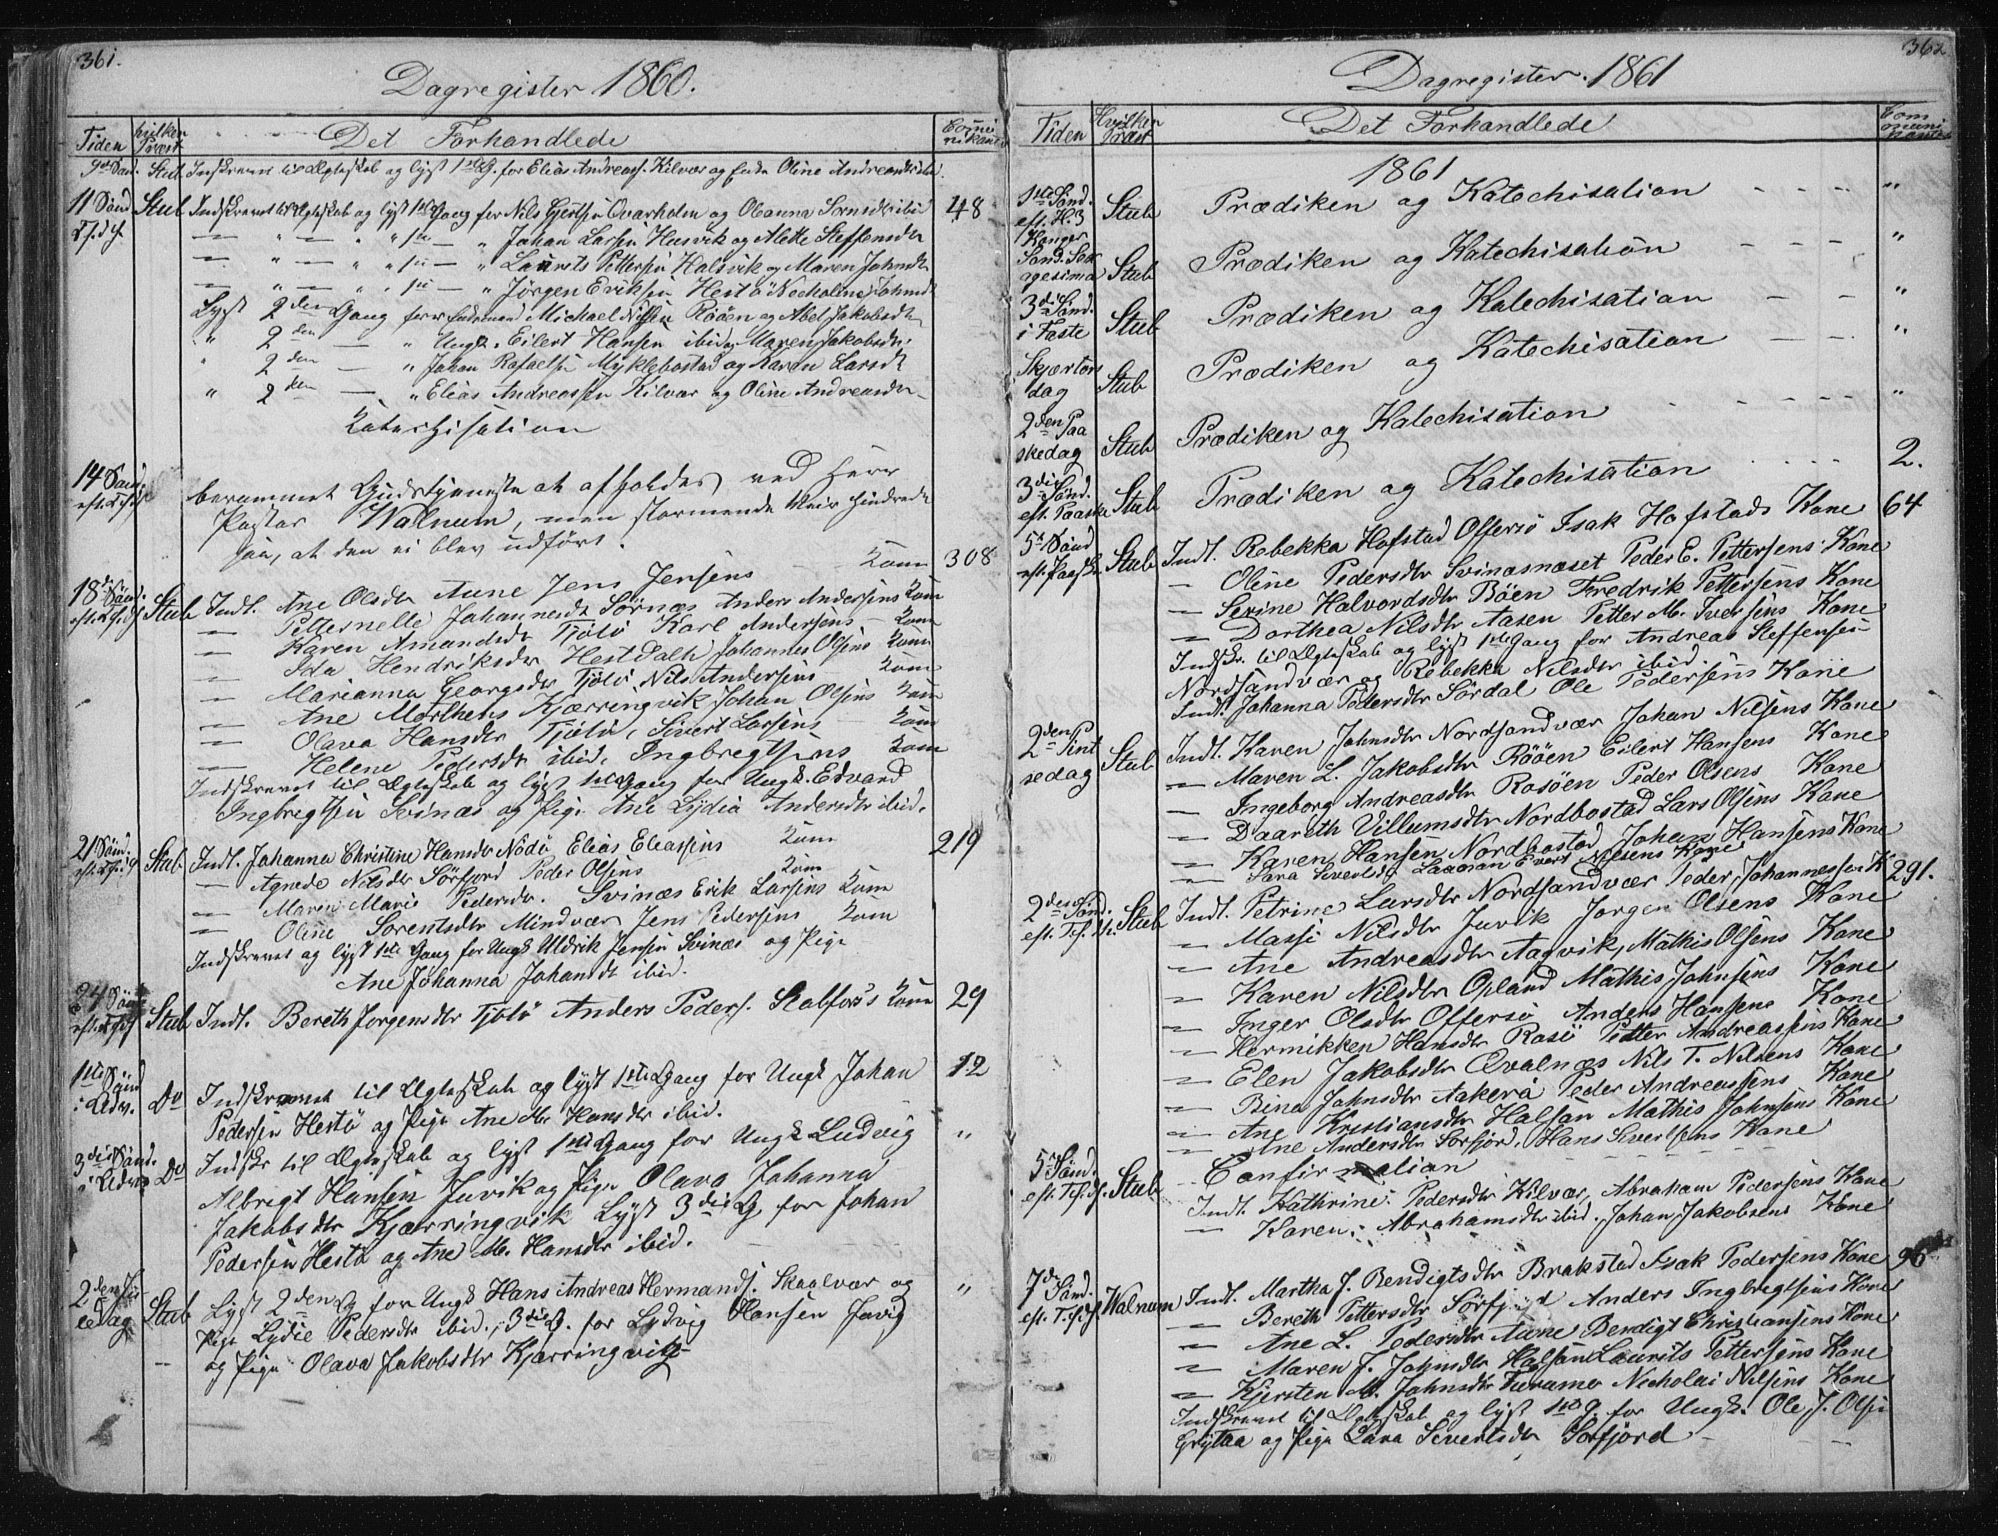 361.
Dagregister 1860.
Tiden
hvilken Præst
Det Forhandlede
Communikanter
9de Sønd. Stub Indskrevet til Ægteskab og lyst 1ste G. for Elias Andreass. Kilvær og Oline Andreasdtr ibid.
11 Sønd Stub Indskrevet til Ægteskab og lyst 1ste Gang for Nils Gjertsen Qvarholm og Oleanna Sørnsdtr ibid 48
— " — " " 1ste — " Johan Larsen Husvik og Alette Steffensdtr
— " — " " 1ste — " Laurits Pettersen Halsvik og Maren Johnsdtr
— " — " " 1ste — " Jørgen Eriksen Hestø
Lyst 2den Gang for Enkemand Michael Nilsen Røøen og Abel Jakobsdtr
" 2den — " Ungk. Eilert Hansen ibid og Maren Jakobsdtr
" 2den — " Johan Rafaelsen Myklebostad og Karen Larsdtr
" 2den — " Elias Andreassen Kilvær og Oline Andreasdtr
Katechisation
14 Sønd. berammet Gudstjeneste at afholdes ved Herr
eft. Tr. Pastor Walnum, men stormende Veir hindrede
saa, at den ei blev udført.
18de Sønd. Stub Indl. Ane Olsdtr Aune Jens Jensens Kone 308
— Petternelle Johannesdtr Sørnæs Anders Andersens Kone
— Karen Amandsdtr Tjølø Karl Andersens — Kone
— Ida Hendriksdtr Hestdalh Johannes Olsens Kone
— Marianna Georgsdtr Tjølø, Nils Andersens Kone
— Ane Morthens Kjærringvik Johan Olsens Kone
— Olava Hansdtr Tjølø, Sivert Larsens — Kone
— Helene Pedersdtr ibid, Ingbregtsens Kone
Indskrevet til Ægteskab og lyst 1ste Gang for Ungk. Edvard
Ingbregtsen Svinæs og Pige Ane Lydia Andersdtr ibid.
21 Sønd. Stub Indl. Johanna Christine Hansdtr Nødø Elias Eleassens Kone 219
— Agnede Nilsdtr Sørfjord Peder Olsens Kone
— Maren Marie Pedersdtr. Svinæs Erik Larsens Kone
— Oline Sorentsdtr Mindvær Jens Pedersens Kone
Indskrevet og lyst 1ste Gang for Ungk Uldrik Jensen Svinæs og Pige
Ane Johanna Johansdtr ibid.
24 Sønd Stub Indl. Bereth Jorgensdtr Tjølø Anders Peders. Stabfors's Kone 29
1ste Sønd i Advt. Do Indskrevet til Ægteskab og lyst 1ste Gang for Ungk Johan 12
Pedersen Hestø og Pige Ane M. Hansdtr ibid.
3die Sønd. i Advt Do Indskr til Ægteskab og lyst 1ste Gang for Ungk Ludvig "
Albregt Hansen Juvik og Pige Olava Johanna
Jakobsdtr Kjærringvik Lyst 3die G for Johan
Pedersen Hestø og Ane M. Hansdtr ibid.
2den Juledag Stub Lyst 2den G for Ungk Hans Andreas Hermands. Skaalvær og "
Pige Lydie Pedersdtr ibid., 3die G. for Ludvig Hansen Juvig
og Pige Olava Jakobsdtr Kjærringvik
362
Dagregister. 1861
Tiden
Hvilken Præst
Det Forhandlede
Communikanter
1861
1ste Sønd. eft. H. 3 Konger Stub Prædiken og Katechisation - - - - "
Sønd. Sexagesima Stub Prædiken og Katechisation - - - - "
3die Sønd. i Faste Stub Prædiken og Katechisation - - "
Skjærtorsdag Stub Prædiken og Katechisation - - - "
2den Paaskedag Stub Prædiken og Katechisation - - - - "
3die Sønd. eft. Paaske Stub Prædiken og Katechisation . . . . 2.
5te Sønd eft. Paaske Stub Indl. Rebekka Hofstad Offersø Isak Hofstads Kone 64
— Oline Pedersdtr Svinæsnæset Peder E. Pettersens Kone
— Serine Halvordsdtr Bøen Fredrik Pettersens Kone
— Dorthea Nilsdtr Aasen Petter M. Iversens Kone
Indskr til Ægteskab og lyst 1ste Gang for Andreas Steffensen
Nordsandvær og Rebekka Nilsdtr ibid.
Indl. Johanna Pedersdtr Sørdal Ole Pedersens Kone
2den Pintsedag Stub Indl. Karen Johnsdtr Nordsandvær Johan Nilsens Kone
— Maren L. Jakobsdtr Røøen Eilert Hansens Kone
— Ingeborg Andreasdtr Rosøen Peder Olsens Kone
— Daareth Villumsdtr Nordbostad Lars Olsens Kone
— Karen Hansen Nordbostad Johan Hansens Kone
— Sara Sivertsdtr Evert Nilsens Kone
2den Sønd. eft. Tr. Stub Indl. Petrine Larsdtr Nordsandvær Peder Johannessen K 291.
— Massi Nilsdtr Juvik Jorgen Olsens Kone
— Ane Andreasdtr Aagvik, Mathis Olsens Kone
— Karen Nilsdtr Opland Mathis Johnsens Kone
— Inger Olsdtr Offersø Anders Hansens Kone
— Hermikken Hansdtr Rosø Petter Andreassens Kone
— Elen Jakobsdtr Qvalnæs Nils T. Nilsens Kone
— Bina Johnsdtr Aakerø Peder Andreassens Kone
— Ane Kristiansdtr Halsan Mathis Johnsens Kone
— Ane Andersdtr Sørfjord. Hans Sivertsens Kone
5te Sønd. Stub Confirmation - - - - -
Indl. Kathrine Pedersdtr Kilvær, Abraham Pedersens Kone
— Karen Abrahamsdtr ibid. Johan Jakobsens Kone
7de Sønd. Walnum Indl. Martha J. Bendigtsdtr Brakstad Isak Pedersens Kone 96
— Bereth Pettersdtr Sørfjord Anders Ingbregtsens Kone
— Ane L. Pedersdtr Aune Bendigt Christiansens Kone
— Maren J. Johnsdtr Halsan Laurits Pettersens Kone
— Kjersten M. Johnsdtr Nicholai Nilsens Kone
Indskrevet til Ægteskab og lyst 1ste G. for Ungk. Ole J. Olsen
Grytaa og Pige Lava Sivertsdtr Sørfjord